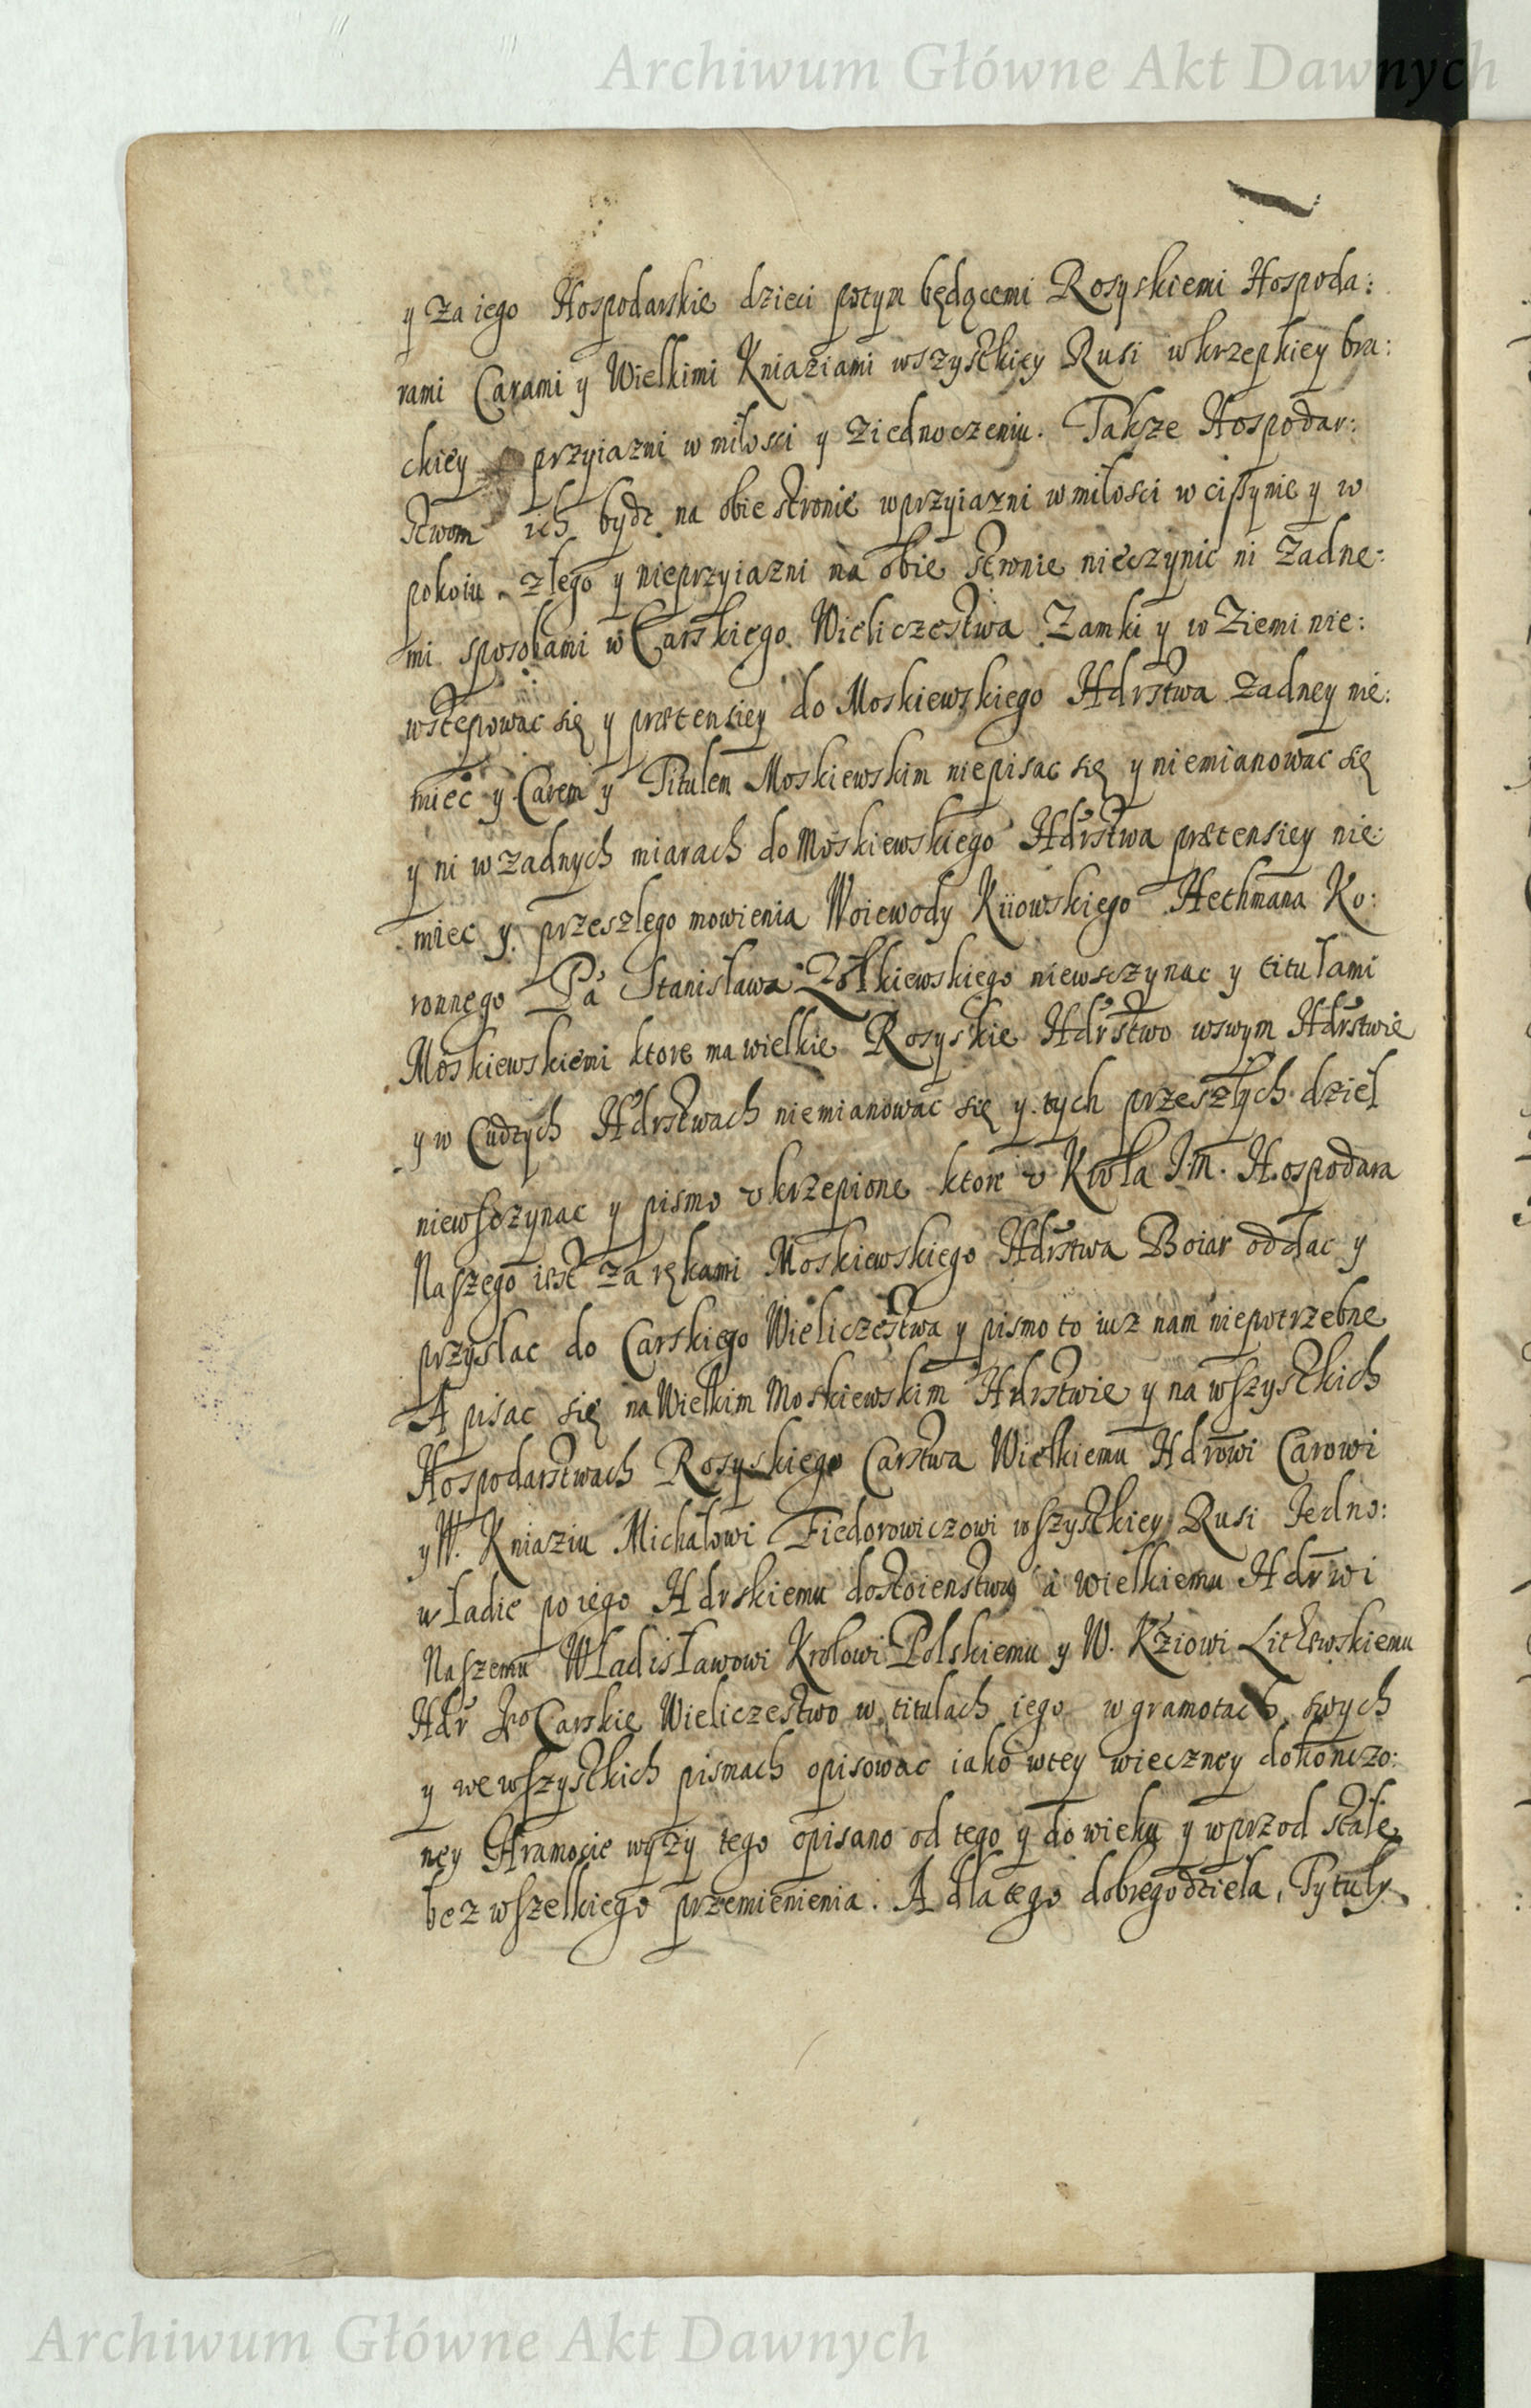 Archiwum Główne Akt Dawnych
y za iego Hospodarskie dzieci potym będącemi Rosyskiemi Hospoda:
rami Carami y Wielkimi Kniaziami wszystkiey Rusi w krzepkiey bra:
ckiey przyiazni w milosci y ziednoczeniu. Takze Hospodar:
stwom ich bydz na obie stronie w przyiazni w milosci w cissynie y w
pokoiu. zlego y nieprzyiazni na obie stronie nieczynic ni zadne:
mi sposobami w Carskiego Wieliczestwa Zamki y w Ziemi nie:
wstępowac się y prætensiey do Moskiewskiego Hdrstwa zadney nie:
miec y Carem y Titulem Moskiewskim niepisac się y niemianowac się
y ni w zadnych miarach do Moskiewskiego Hdrstwa prætensiey nie:
miec y przeszlego mowienia Woiewody Kiiowskiego Hethmana Ko:
ronnego Pa Stanisława Zołkiewskiego niewsczynac y titulami
Moskiewskiemi ktore ma wielkie Rosyskie Hdrstwo w swym Hdrstwie
y w Cudzych Hdrstwach niemianowac się y tych przeszłych dzieł
niewsczynac y pismo vkrzepione ktore v Krola J.M. Hospodara
Naszego iest za rękami Moskiewskiego Hdrstwa Boiar oddac y
przyslac do Carskiego Wieliczestwa y pismo to iuz nam niepotrzebne
A pisac się na Wielkim Moskiewskim Hdrstwie y na wszystkich
Hospodarstwach Rosyskiego Carstwa Wielkiemu Hdrowi Carowi
y W. Kniaziu Michałowi Fiedorowiczowi wszystkiey Rusi Jedno:
władie po iego Hdrskiemu dostoienstwu a wielkiemu Hdrwi
Naszemu Władisławowi Krolowi Polskiemu y W. Kziowi Litewskiemu
Hdr Jro Carskie Wieliczestwo w titulach iego w gramotach swych
y we wszystkich pismach opisowac iako w tey wieczney dokonczo:
ney Hramocie wyzy tego opisano od tego y do wieku y w przod stale
bez wszelkiego przemienienia. A dla tego dobrego dziela, Tytuly
Archiwum Główne Akt Dawnych